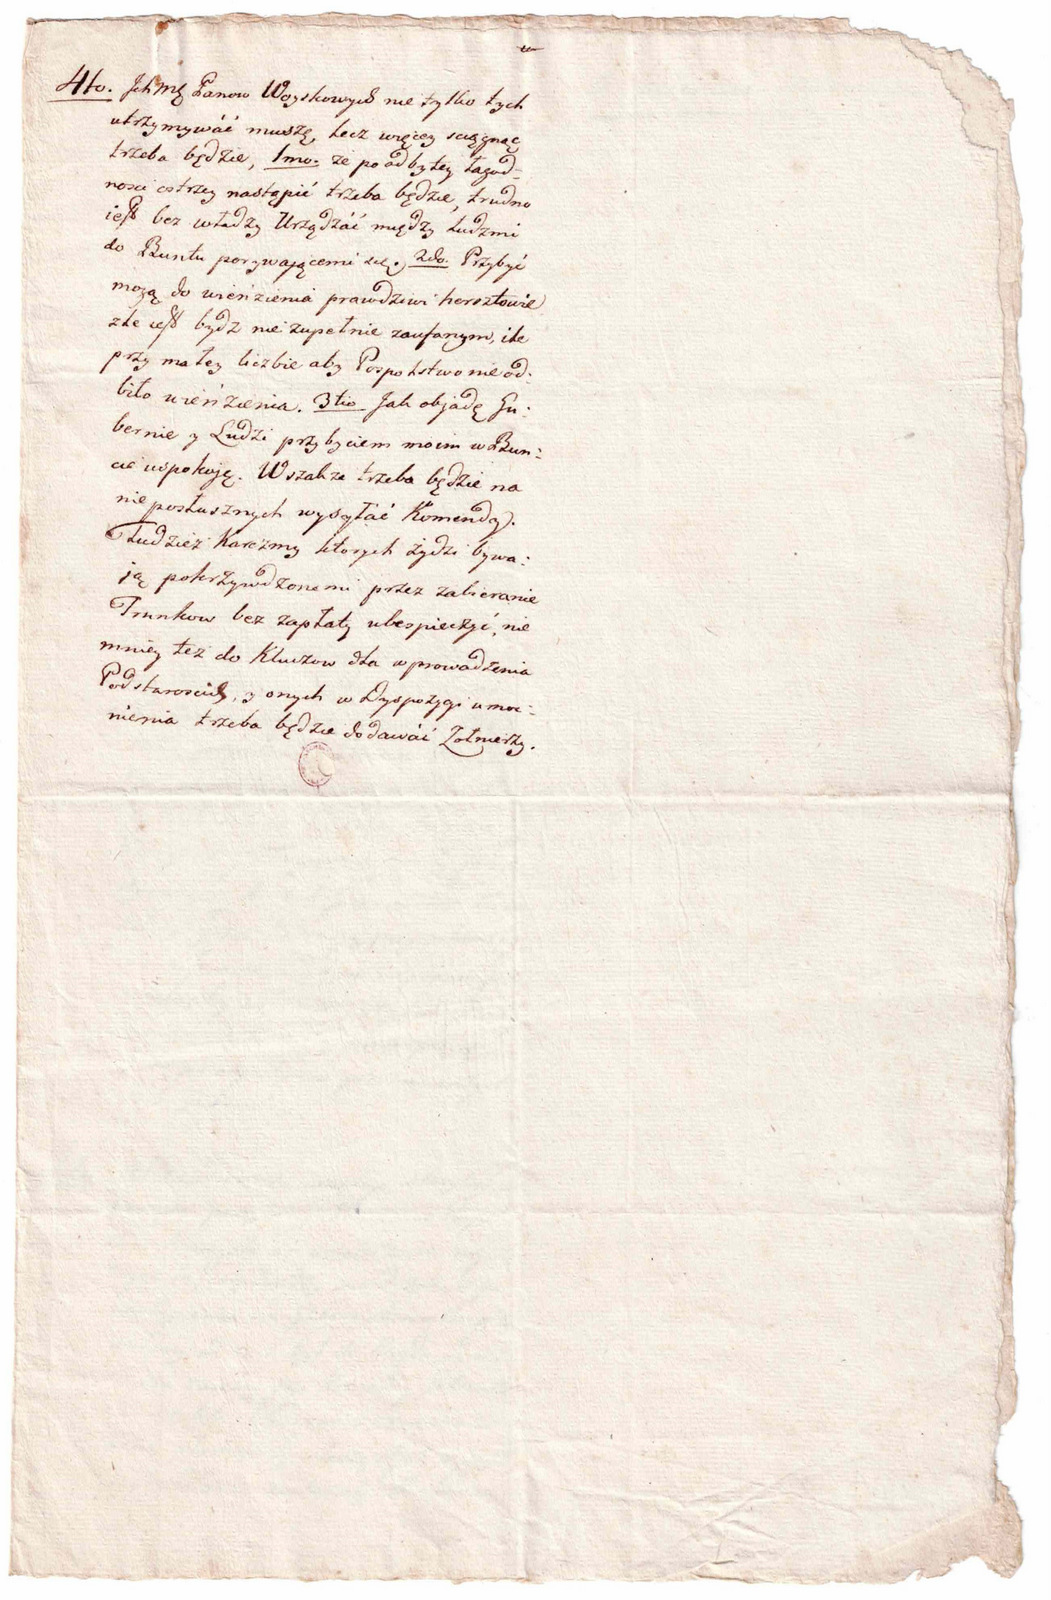 4to. Jchmę Panow Woyskowych nie tylko tych
utrzymywać muszę, lecz więcey sciągnąć
trzeba będzie, 1mo. że po odbytey łagod-
nosci ostrzey nastąpić trzeba będzie, trudno
iest bez władzy Urządzać między Ludzmi
do Buntu porywaiącemi się, 2do. Przybyć
mogą do więzienia prawdziwi hersztowie
zle iest bydz nie zupełnie zaufanym, ile
przy małey liczbie aby Pospolstwo nie od:
biło więzienia. 3tio Jak objadę Gu:
bernie y Ludzi przybyciem moim w Bun:
cie uspokoję. Wszakze trzeba będzie na
nieposłusznych wysyłać Komendy.
Tudzież Karczmy ktorych żydzi bywa:
ią pokrzywdzonemi przez zabieranie
Trunkow bez zapłaty ubespieczyć, nie
mniey tez do Kluczow dla wprowadzenia
Podstarościch, y onych w Dyspozycyi umoc:
nienia trzeba będzie dodawać Zołnierzy.